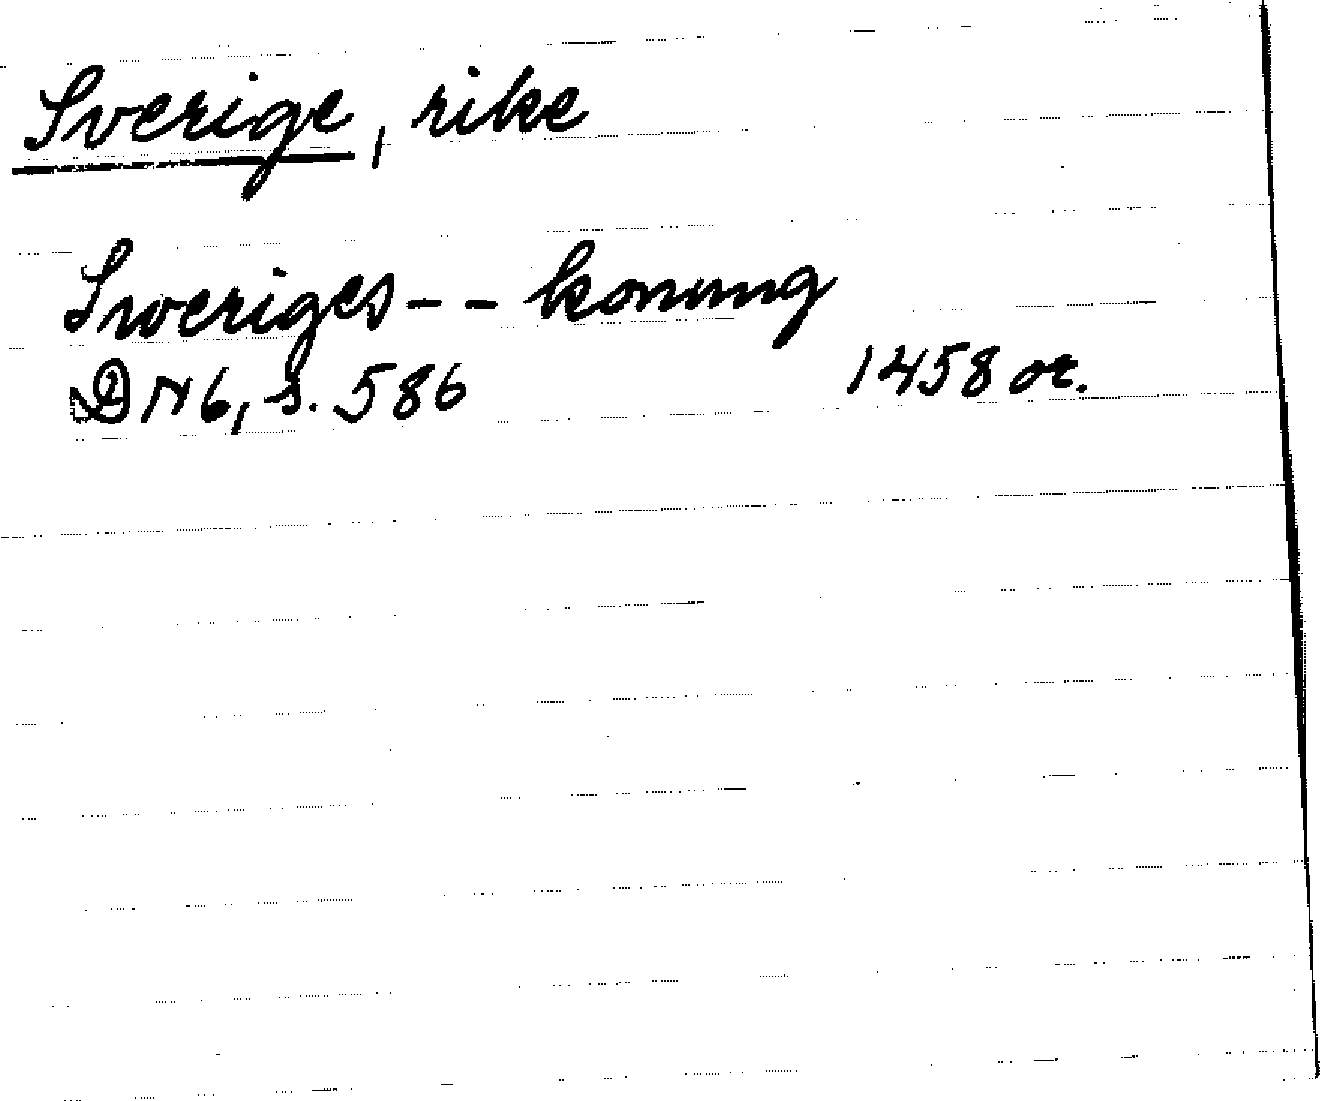 Sverige, rike
Sweriges -- konung
DN6, s. 586 1458 or.